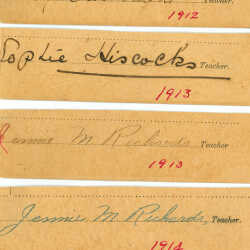 1912
Sophie Hiscocks Teacher.
1913
Jennie M Richards, Teacher
1913
Jennie M Richards, Teacher.
1914